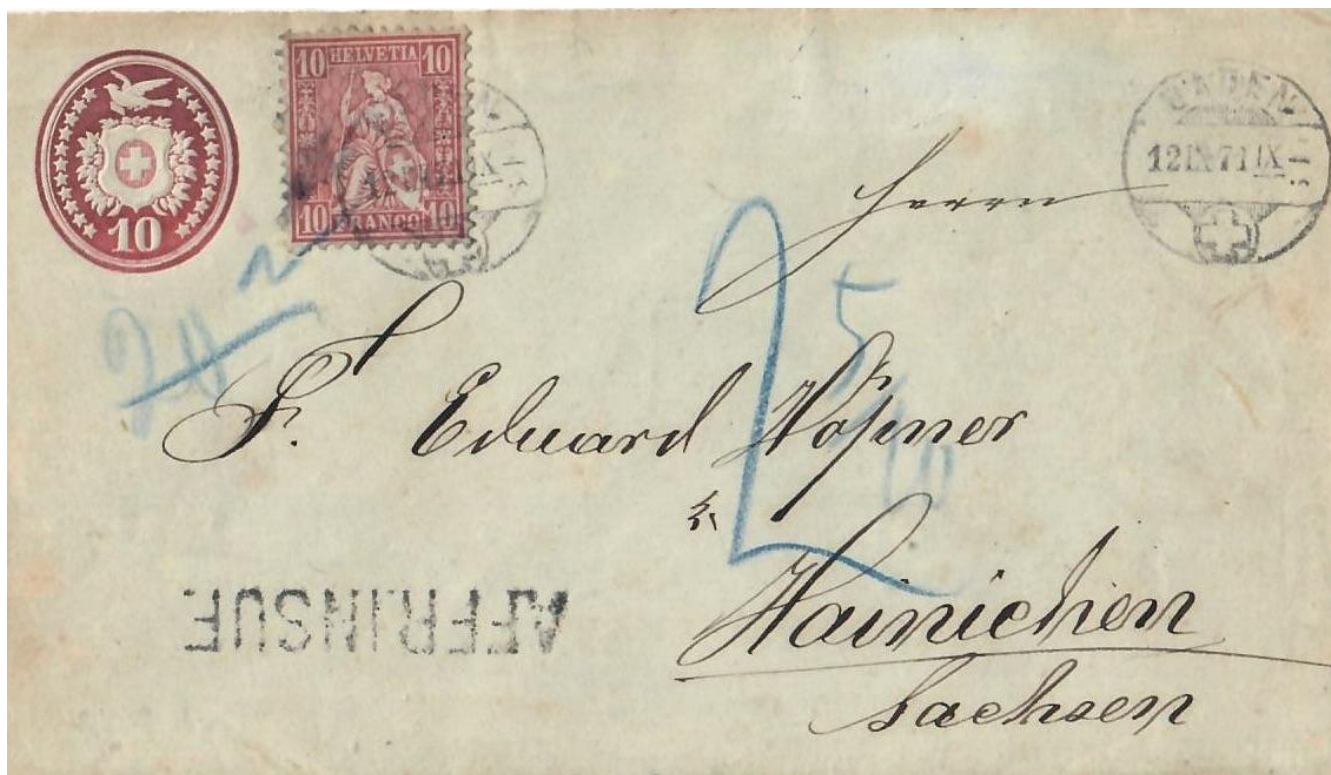 10 HELVETIA 10
10 FRANCO 10
10
BADEN
12 IX 71 IX
Herrn
20
2
5
10
F. Eduard
Hainichen
Sachsen
AFFR.INSUF.